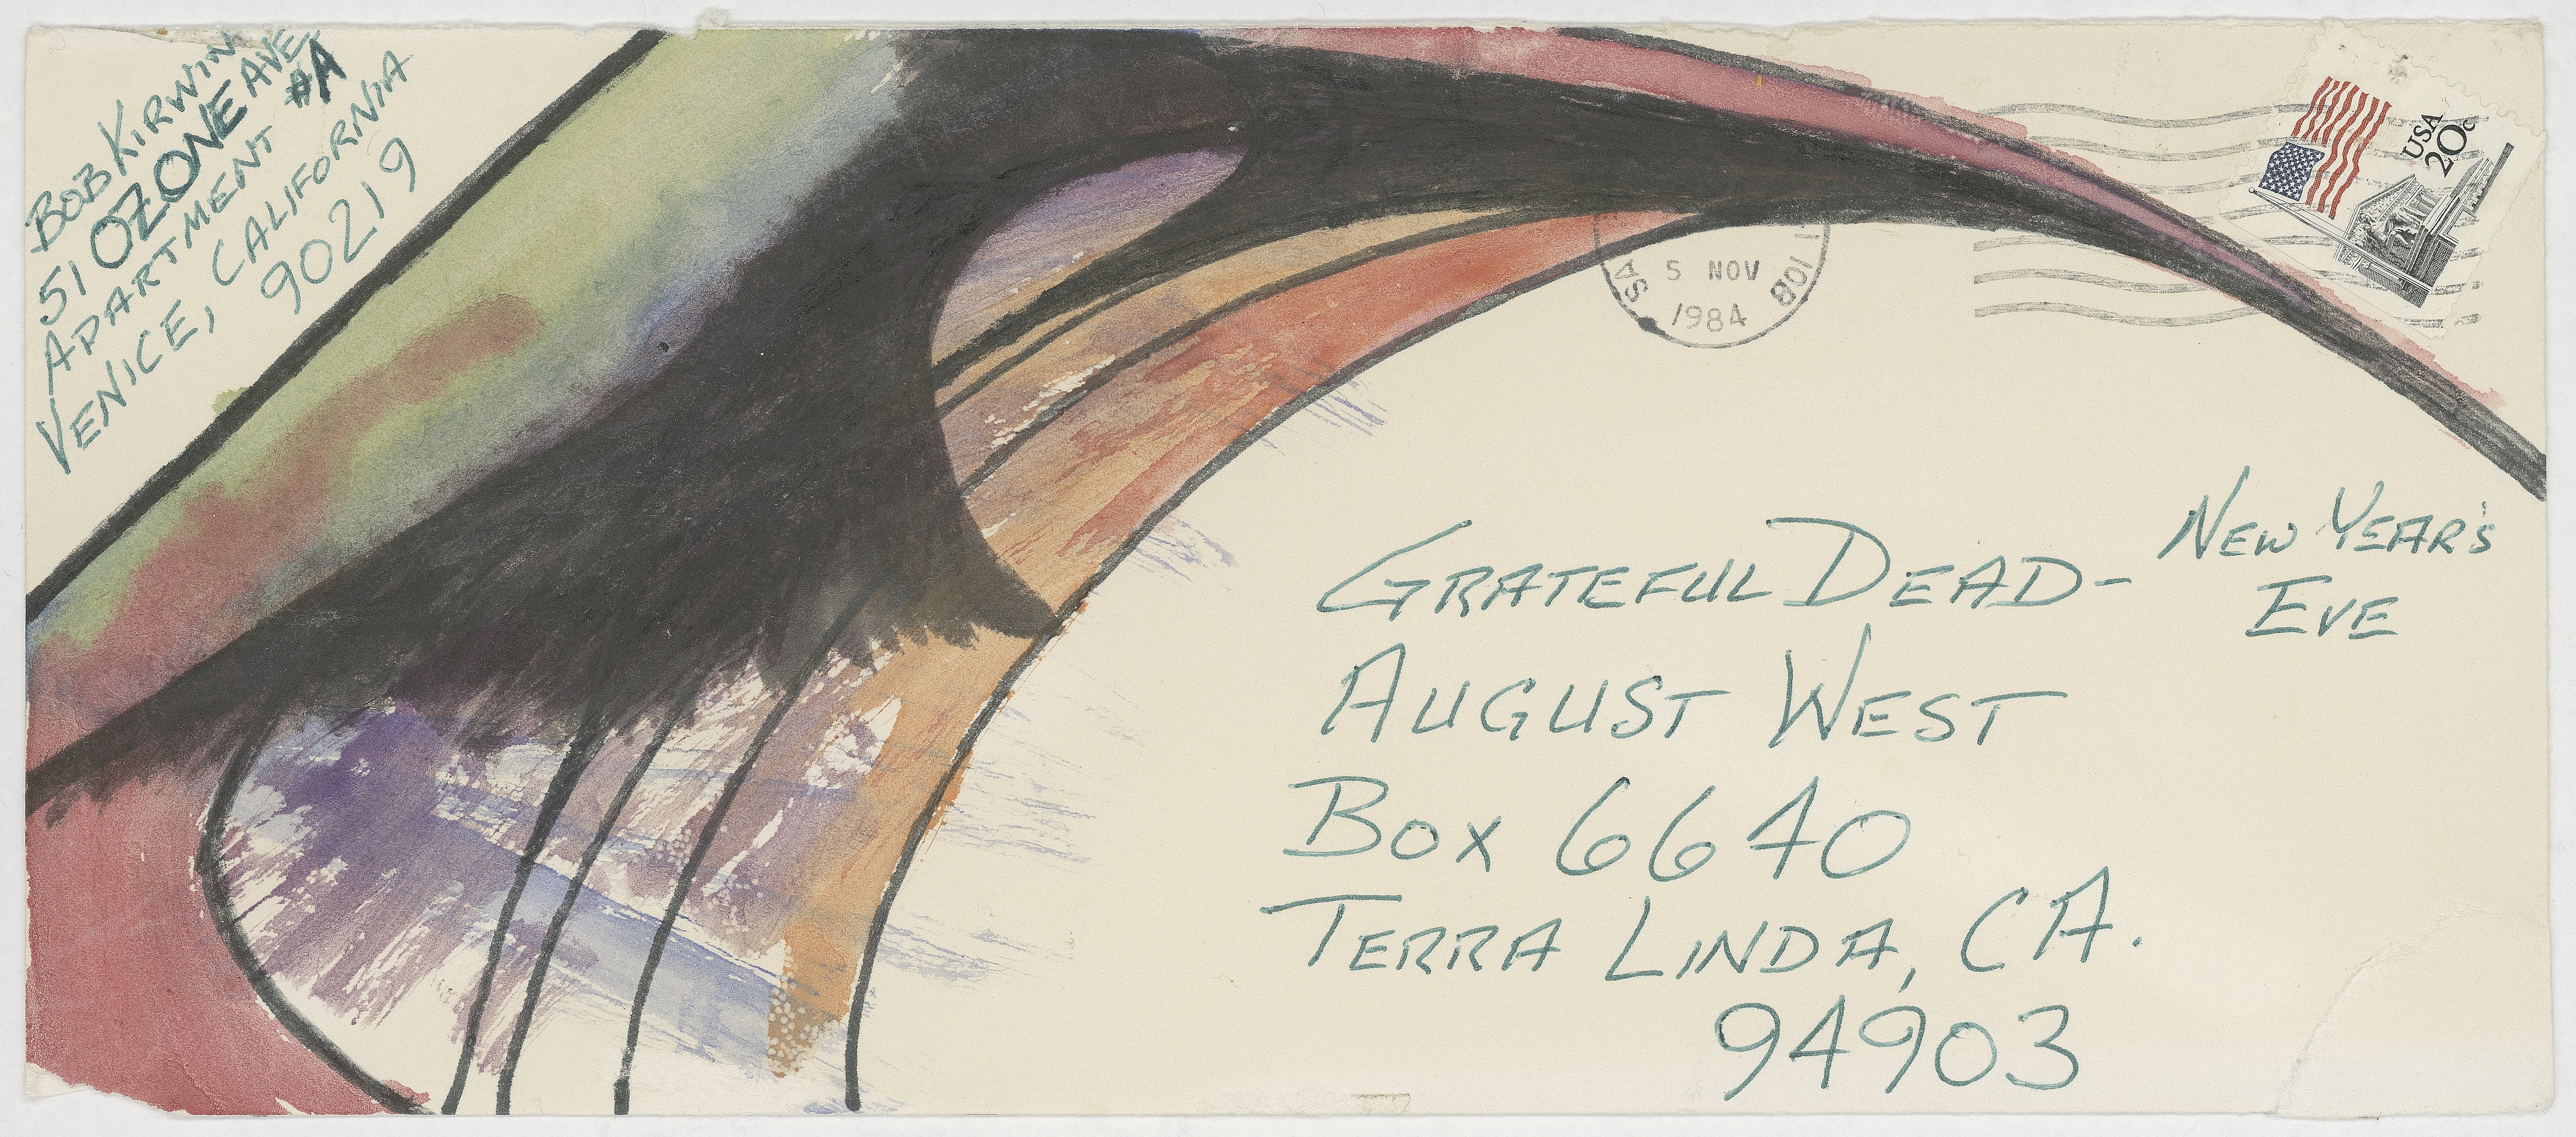 BOB KIRWIN
51 OZONE AVE.
APARTMENT #A
VENICE, CALIFORNIA
90219
USA
20c
5 NOV
1984
GRATEFUL DEAD- NEW YEAR'S
EVE
AUGUST WEST
BOX 6640
TERRA LINDA, CA.
94903